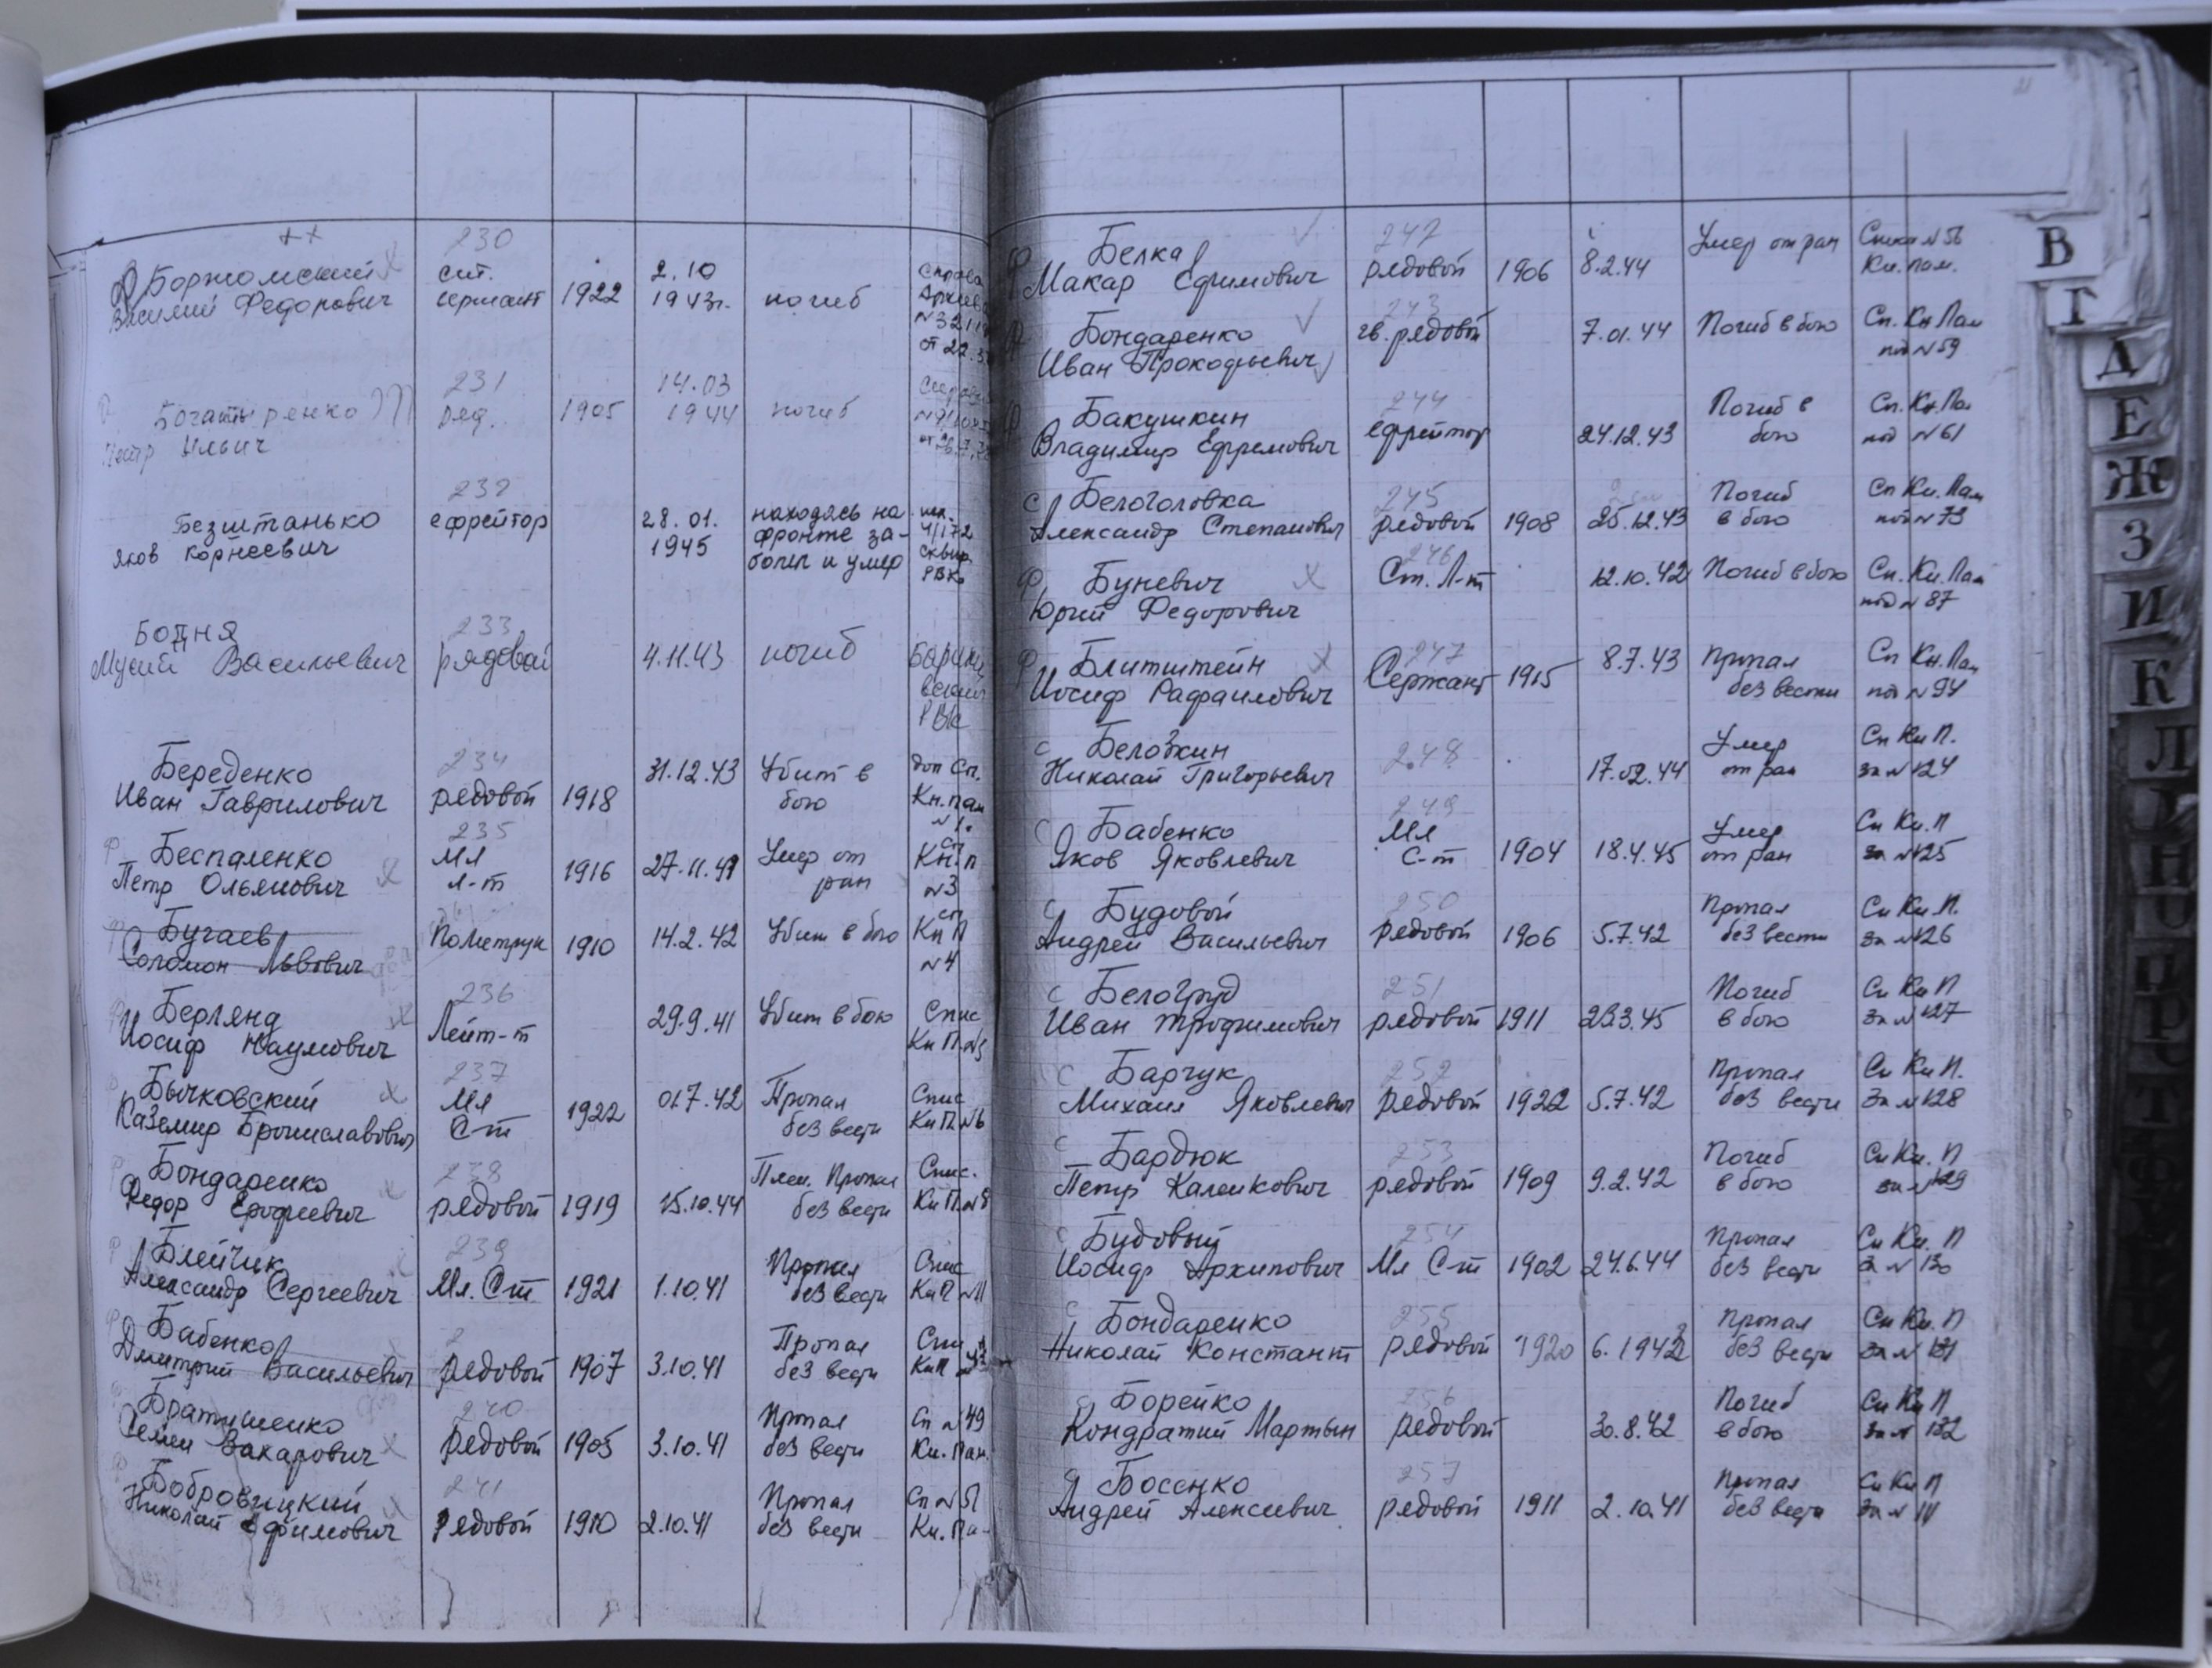 230
Боржомский
Василий Федорович
сит.
сержант
1922
2.10
1943г.
погиб
231
Богатыренко
Петр Ильич
ряд.
1905
14.03
1944
погиб
232
Безштанько
Яков Корнеевич
ефрейтор
28.01.
1945
находясь на
фронте за-
болел и умер
4/172
сквир.
РВК
233
Бодня
Мусий Васильевич
рядовой
4.11.43
погиб
РВК
234
Береденко
Иван Гаврилович
рядовой
1918
31.12.43
Убит в
бою
доп Сп.
Кн. пам
№1.
235
Беспаленко
Петр Ольянович
Мл
л-т
1916
27.11.41
Умер от
ран
Сп
Кн. п
№3
Бугаев
Соломон Львович
Политрук
1910
14.2.42
Убит в бою
сп
Кн П
№4
236
Берлянд
Иосиф Наумович
Лейт-т
29.9.41
Убит в бою
Спис
Кн П. №5
237
Бычковский
Каземир Брониславович
Мл
Ст
1922
01.7.42
Пропал
без вести
Спис
Кн П №6
238
Бондаренко
Федор Ерофеевич
рядовой
1919
15.10.44
Плен. Пропал
без вести
Спис.
Кн П. №8
239
Блейчик
Александр Сергеевич
Мл. Ст
1921
1.10.41
Пропал
без вести
Спис
Кн П №11
Бабенко
Дмитрий Васильевич
рядовой
1907
3.10.41
Пропал
без вести
Спи
Кн П
240
Братишенко
Семен Захарович
рядовой
1905
3.10.41
Пропал
без вести
Сп №49
Кн. Пам.
241
Бобровицкий
Николай Ефимович
рядовой
1910
2.10.41
Пропал
без вести
Сп №51
Кн. Па-
242
Белка
Макар Ефимович
рядовой
1906
8.2.44
Умер от ран
Списк №56
Кн. пам.
243
Бондаренко
Иван Прокофьевич
гв. рядовой
7.01.44
Погиб в бою
Сп. Кн Пам
под №59
244
Бакушкин
Владимир Ефремович
ефрейтор
24.12.43
Погиб в
бою
Сп. Кн. Па.
под №61
245
с Белоголовка
Александр Степанович
рядовой
1908
25.12.43
Погиб
в бою
Сп Кн. Пам
под №73
246
Ф Буневич
Юрий Федорович
Ст. Л-т
12.10.42
Погиб в бою
Сп. Кн. Пам
под №87
247
Ф Блитштейн
Иосиф Рафаилович
Сержант
1915
8.7.43
Пропал
без вести
Сп Кн. Пам
под №94
248
с Белозкин
Николай Григорьевич
17.02.44
Умер
от ран
Сп Кн П.
за №124
249
с Бабенко
Яков Яковлевич
Мл
С-т
1904
18.4.45
Умер
от ран
Сп Кн. П
за №125
250
с Будовой
Андрей Васильевич
рядовой
1906
5.7.42
Пропал
без вести
Сп Кн. П.
за №126
251
с Белогруд
Иван Трофимович
рядовой
1911
23.3.45
Погиб
в бою
Сп Кн П
за №127
252
с Барчук
Михаил Яковлевич
рядовой
1922
5.7.42
Пропал
без вести
Сп Кн П.
за №128
253
с Бардюк
Петр Каленкович
рядовой
1909
9.2.42
Погиб
в бою
Сп Кн. П
за №129
254
с Будовый
Иосиф Архипович
Мл Ст
1902
24.6.44
Пропал
без вести
Сп Кн. П
за № 130
255
с Бондаренко
Николай Констант
рядовой
1920
6.1942
Пропал
без вести
Сп Кн. П
за № 131
256
с Борейко
Кондратий Мартын
рядовой
30.8.42
Погиб
в бою
Сп Кн П
за № 132
257
Босенко
Андрей Алексеевич
рядовой
1911
2.10.41
Пропал
без вести
Сп Кн П
за № 111
В
Г
Д
Е
Ж
З
И
К
Л